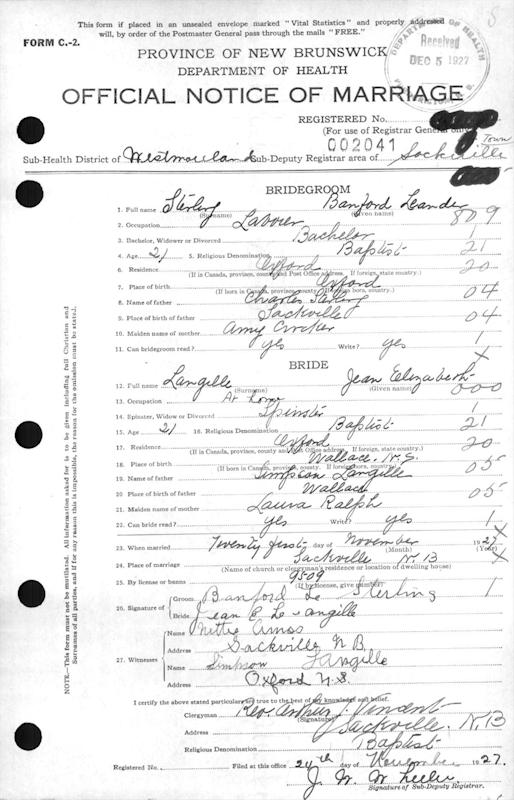 This form if placed in an unsealed envelope marked "Vital Statistics" and properly addressed
will, by order of the Postmaster General pass through the mails "FREE."
8
FORM C.-2.
PROVINCE OF NEW BRUNSWICK
DEPARTMENT OF HEALTH
DEPARTMENT OF HEALTH
Received
DEC 5 1927
FREDERICTON, N. B.
OFFICIAL NOTICE OF MARRIAGE
REGISTERED No.
(For use of Registrar General only)
002041
Town
Sub-Health District of Westmorland Sub-Deputy Registrar area of Sackville
BRIDEGROOM
1. Full name Sterling Banford Leander
(Surname) (Given name)
2. Occupation Laborer 809
3. Bachelor, Widower or Divorced Bachelor 1
4. Age 21 5. Religious Denomination Baptist 21
6. Residence Oxford 20
(If in Canada, province, county and Post Office address. If foreign, state country.)
7. Place of birth Oxford
(If born in Canada, province, county. If foreign born, country.)
8. Name of father Charles Sterling 04
9. Place of birth of father Sackville 04
10. Maiden name of mother Amy Crocker
11. Can bridegroom read? yes Write? yes 1
X
BRIDE
12. Full name Langille Jean Elizabeth
(Surname) (Given name)
13. Occupation At home 000
14. Spinster, Widow or Divorced Spinster 1
15. Age 21 16. Religious Denomination Baptist 21
17. Residence Oxford 20
(If in Canada, province, county and Post Office address. If foreign, state country.)
18. Place of birth Wallace N.S.
(If born in Canada, province, county. If foreign born, country.)
19. Name of father Simpson Langille 05
20. Place of birth of father Wallace 05
21. Maiden name of mother Laura Ralph
22. Can bride read? yes Write? yes 1
X
23. When married Twenty first day of November 1927
(Month) (Year)
24. Place of marriage Sackville N.B X
(Name of church or clergyman's residence or location of dwelling house)
25. By license or banns 9509 1
(If by license, give number)
26. Signature of
Groom Banford Le Sterling
Bride Jean E Langille
27. Witnesses
Name Nettie Amos
Address Sackville N B.
Name Simpson Langille
Address Oxford N.S.
I certify the above stated particulars are true to the best of my knowledge and belief.
Clergyman Rev. Arthur J. Vincent
(Signature)
Address Sackville. N.B
Religious Denomination Baptist
Registered No. Filed at this office 24th day of November 1927.
J. W. Wheeler
Signature of Sub-Deputy Registrar.
NOTE—This form must not be mutilated. All information asked for is to be given including full Christian and
Surnames of all parties, and if for any reason this is impossible, the reason for the omission must be stated.